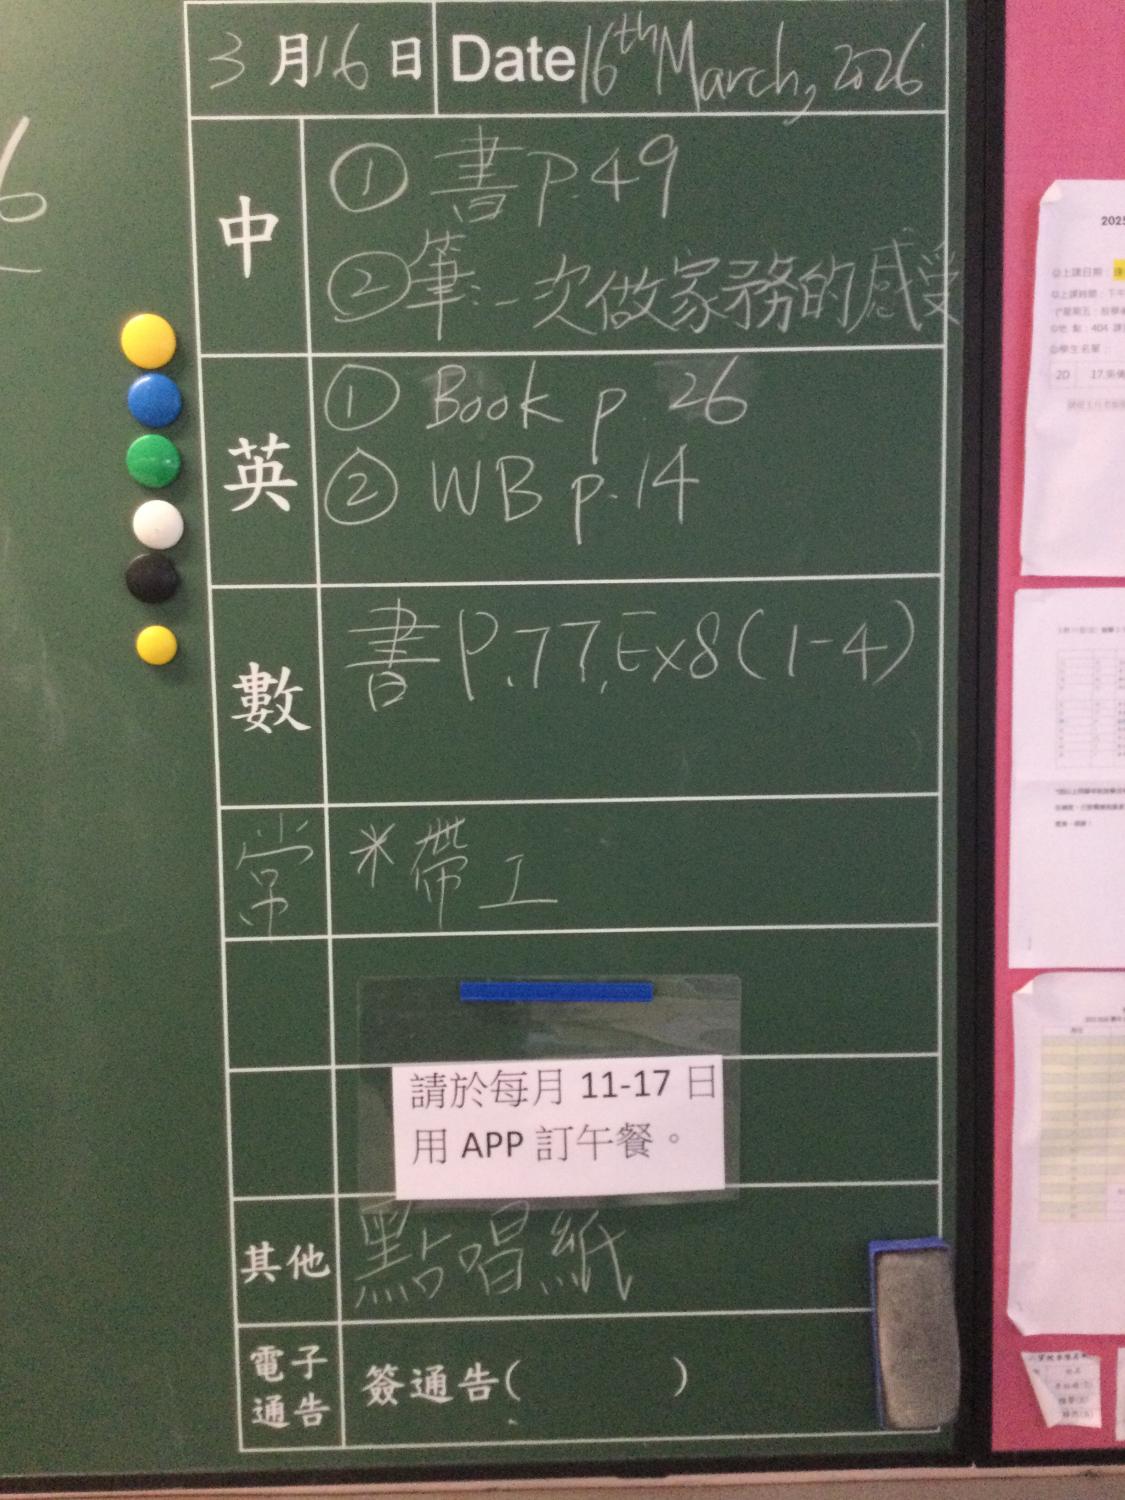 3月16日 Date 16th March, 2026
中
① 書 P.49
② 筆:一次做家務的感受
英
① Book p. 26
② WB p.14
數
書 P.77, Ex8(1-4)
常
*帶工
請於每月 11-17 日
用 APP 訂午餐。
其他
點唱紙
電子
通告
簽通告( )
6
2025
上課日期：
404
2D 17.